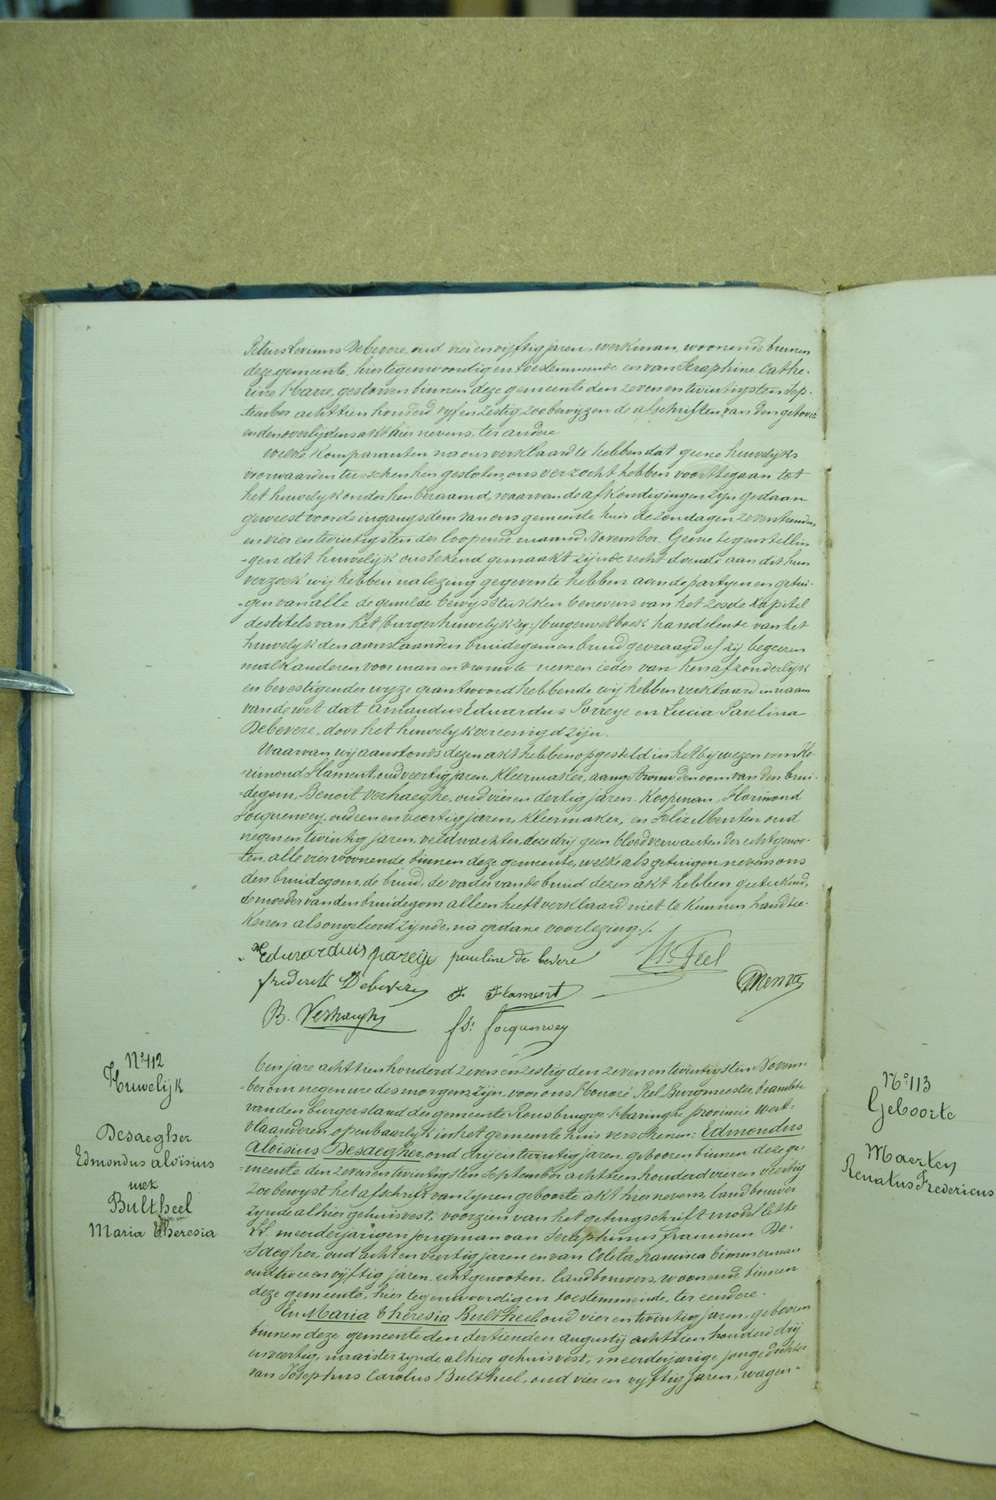 Petrus Livinus Debevere, oud drie en vijftig jaren, werkman, woonende binnen
deze gemeente, hier tegenwoordig en toestemmende en van Seraphine Cathe-
rine Marre, gestorven binnen deze gemeente den zeven en twintigsten Sep-
tember achttien honderd vyf en zestig zoo bewyzen de afschriften van den geboorte
en den overlijdens akt hier nevens, ter andere
Welke Komparanten na ons verklaard te hebben dat geene huwelijks
voorwaarden tusschen hen gesloten, ons verzocht hebben voort te gaan tot
het huwelijk onder hen beraamd, waarvan de afkondigingen zijn gedaan
geweest voor de ingangsdeur van ons gemeente huis de zondagen zeventienden
en vier en twintigsten der loopende maand November. Geene tegenstellin-
gen dit huwelijk ons bekend gemaakt zijnde recht doende aan dit hun
verzoek wij hebben na lezing gegeven te hebben aan de partyen en getui-
gen van alle de gemelde bewysstukken benevens van het zesde Kapittel
des titels van het burger huwelijk zy: burgerwetboek handelende van het
huwelijk den aanstaanden bruidegom en bruid gevraagd of zij begeeren
malkanderen voor man en vrouw te nemen ieder van hen afzonderlijk
en bevestigender wyze geantwoord hebbende wij hebben verklaard in naam
van de wet dat Amandus Eduardus Porreye en Lucia Paulina
Debevere, door het huwelijk vereenigd zijn.
Waarvan wij aanstonds dezen akt hebben opgesteld in het bywezen van
Flament oud veertig jaren Kleermaker, oom van den brui-
degom, Benoit Verhaeghe, oud vier en dertig jaren Koopman, Florimond
Jocquewey, oud een en veertig jaren Kleermaker, en Felix Menten oud
negen en twintig jaren, veldwachter, deze drij geen bloedverwanten der echtgenoo-
ten, alle vier woonende binnen deze gemeente, welke als getuigen nevens ons
den bruidegom, de bruid, de vader van de bruid dezen akt hebben geteekend,
de moeder van den bruidegom alleen heeft verklaard niet te kunnen handtee-
kenen als ongeleerd zijnde, na gedane voorlezing./.
Eduarduis poreije pauline de bevere H. Feel
frederik Debevere F. Flament Menten
B. Verhaeghe fs. Jocquewey
N° 112
Huwelijk
Desaegher
Edmondus aloïsius
met
Bultheel
Maria Theresia
Ten jare achttien honderd zeven en zestig den zeven en twintigsten Novem-
ber om negen ure des morgens zijn voor ons Honoré Feel Burgmeester beambte
van den burgerstand der gemeente Rousbrugge Haringhe provincie West-
vlaanderen, openbaarlijk in het gemeente huis verschenen: Edmondus
Aloisius Desaegher, oud drij en twintig jaren, geboren binnen deze ge-
meente den zeven en twintigsten September achttien honderd vier en veertig
zoo bewyst het afschrift van zijnen geboorte akt hier nevens, landbouwer
zynde alhier gehuisvest, voorzien van het getuigschrift model lette
meerderjarigen jongman van Seraphinus Franciscus De-
Saegher, oud acht en veertig jaren en van Coleta Francisca Timmerman
oud twee en vijftig jaren echtgenooten, landbouwers, woonende binnen
deze gemeente, hier tegenwoordig en toestemmende, ter eendere.
En Maria Theresia Bultheel oud vier en twintig jaren, geboren
binnen deze gemeente den dertienden augusty achttien honderd drij
en veertig, zynde alhier gehuisvest, meerderjarige jonge dochter
van Josephus Carolus Bultheel, oud vier en vyftig jaren, wagen-
N° 113
Geboorte
Maerten
Renatus Fredericus